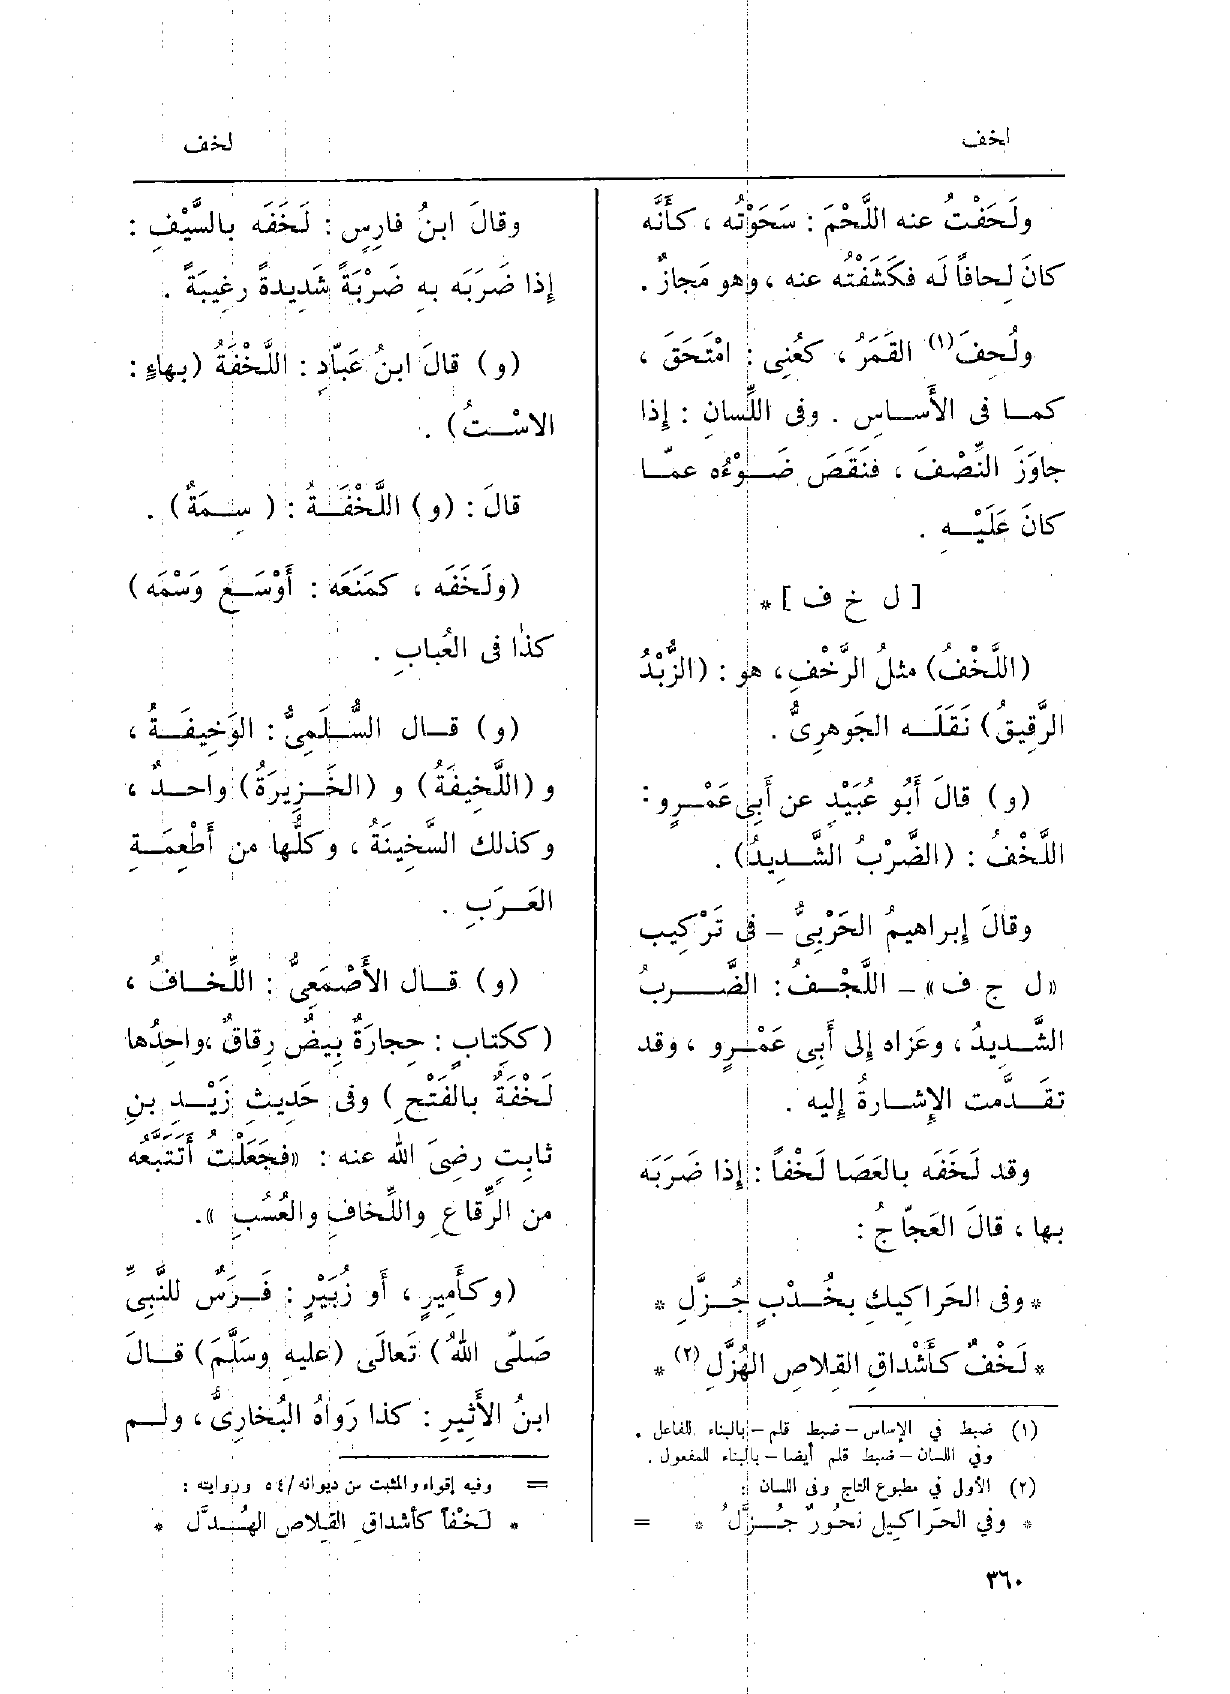 لخف
لخف
ولَحَفْتُ عنه اللَّحْمَ : سَحَوْتُه ، كأَنَّه
كانَ لِحافاً لَه فكَشَفْتُه عنه ، وهو مَجازٌ .
ولُحِفَ(١) القَمَرُ ، كعُنِى : امْتَحَقَ ،
كمـا فى الأَسـاسِ . وفى اللِّسانِ : إِذا
جاوَزَ النِّصْفَ ، فنَقَصَ ضَـوْءُه عمّـا
كانَ عَلَيْـهِ .
[ ل خ ف ] *
(اللَّخْفُ) مثلُ الرَّخْفِ، هو : (الزُّبْدُ
الرَّقِيقُ) نَقَلَـه الجَوهرِىُّ .
(و) قالَ أَبُو عُبَيْدٍ عن أَبِى عَمْـرٍو :
اللَّخْفُ : (الضَّرْبُ الشَّدِيدُ) .
وقالَ إِبراهيمُ الحَرْبِىُّ – فى تَرْكِيب
«ل ج ف» – اللَّجْـفُ : الضَّـرْبُ
الشَّـدِيدُ ، وعَزاه إِلى أَبِى عَمْـرٍو ، وقد
تقَـدَّمت الإِشـارةُ إِليه .
وقد لَخَفَه بالعَصَا لَخْفاً : إِذا ضَرَبَه
بها ، قالَ العَجّاجُ :
* وفى الحَراكِيكِ بخُـدْبٍ جُـزَّلِ *
* لَخْفٌ كأَشْداقِ القِلاصِ الهُزَّلِ (٢) *
(١) ضبط في الإساس – ضبط قلم – بالبناء للفاعل .
وفي اللسان – ضبط قلم أيضا – بالبناء للمفعول .
(٢) الأول في مطبوع التاج وفى اللسان :
* وفي الحَراكِيل نحُورٌ جُـزَّلُ * =
وقالَ ابنُ فارِسٍ : لَخَفَه بالسَّيْفِ :
إِذا ضَرَبَه به ضَرْبَةً شَدِيدةً رغِيبَةً .
(و) قالَ ابنُ عَبّادٍ : اللَّخْفَةُ (بهاءٍ :
الاسْـتُ) .
قالَ : (و) اللَّخْفَـةُ : ( سِـمَةٌ) .
(ولَخَفَه ، كمَنَعَه : أَوْسَـعَ وَسْمَه)
كذٰا فى العُبابِ .
(و) قـال السُّـلَمِىُّ : الوَخِيفَـةُ ،
و (اللَّخِيفَةُ) و (الخَـزِيرَةُ) واحـدٌ ،
وكذلك السَّخِينَةُ ، وكلُّها من أَطْعِمَـةِ
العَـرَبِ .
(و) قـال الأَصْمَعِىُّ : اللِّخـافُ ،
( ككِتابٍ : حِجارَةٌ بِيضٌ رِقاقٌ ،واحِدُها
لَخْفَةٌ بالفَتْحِ ) وفى حَدِيثِ زَيْـدِ بنِ
ثابِتٍ رضِىَ الله عنه : «فجَعَلْتُ أَتَتَبَّعُه
من الرِّقاعِ واللِّخافِ والعُسُبِ ».
(وكأَمِيرٍ ، أَو زُبَيْرٍ : فَـرَسٌ للنَّبِىِّ
صَلّى اللهُ) تَعالَى (عليهِ وسَلَّمَ) قـالَ
ابنُ الأَثِيرِ : كذا رَواهُ البُخارِىُّ ، ولـم
= وفيه إقواء والمثبت من ديوانه /٥٤ وروايته :
* لَخْفاً كأشداقِ القِلاصِ الهُـدَّلِ *
٣٦٠